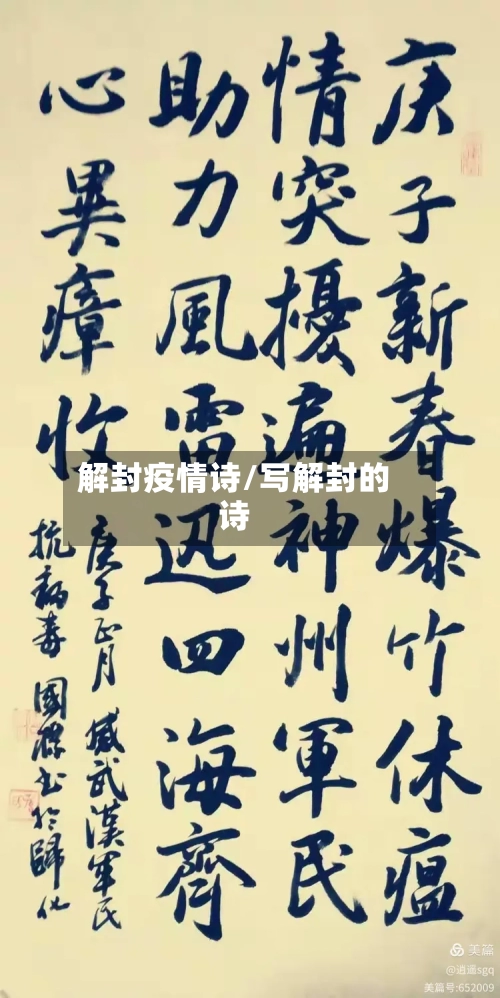 庚子新春爆竹休瘟
情突擾遍神州軍民
助力風雷迅四海齊
心異瘴收
庚子正月 感武漢軍民
抗病毒 國輝書於歸化
解封疫情诗/写解封的
诗
美篇
@逍遥sgq
美篇号:652009